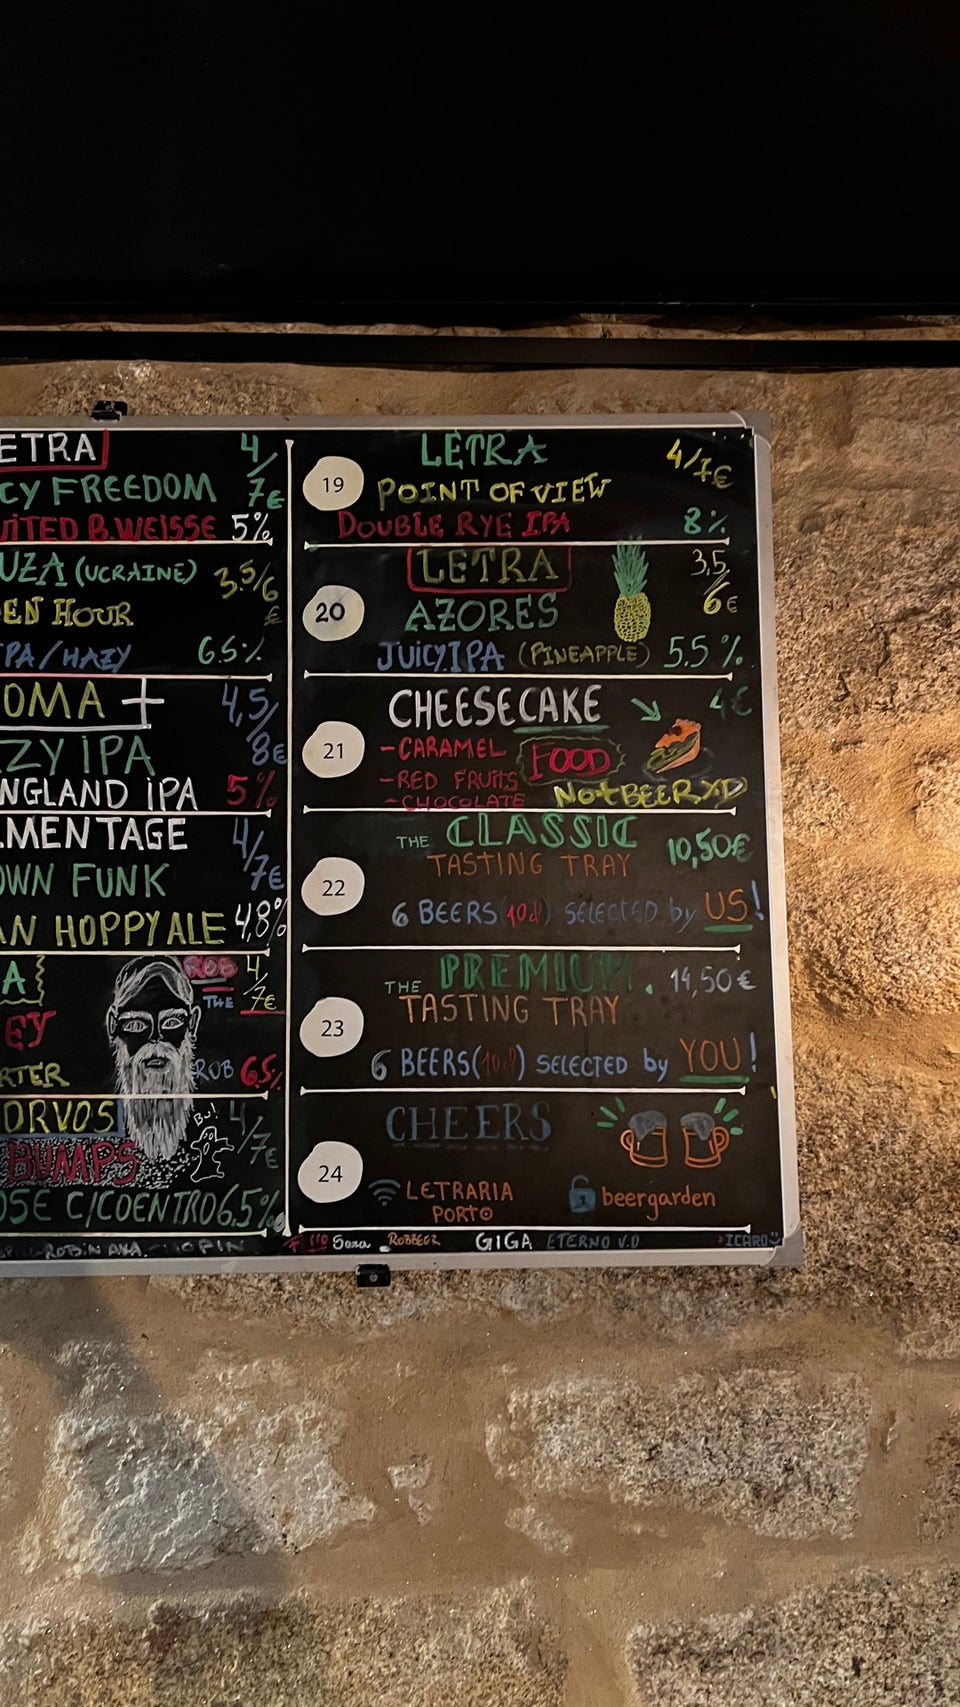 ETRA
4/
7€
CY FREEDOM
UITED B.WEISSE 5%
UZA (UCRAINE)
3.5/6
€
EN HOUR
PA/HAZY 6.5%
OMA +
4,5/
8€
ZY IPA
NGLAND IPA 5%
MENTAGE
4/
7€
OWN FUNK
AN HOPPY ALE 4,8%
A
ROB
THE
ROB
4/
7€
EY
RTER 6.5%
ORVOS
BU!
4/
7€
BUMPS
OSE C/COENTRO 6.5%
19
LETRA
4/7€
POINT OF VIEW
DOUBLE RYE IPA 8%
20
LETRA
3,5/
6€
AZORES
JUICY IPA (PINEAPPLE) 5.5%
21
CHEESECAKE 4€
-CARAMEL
-RED FRUITS
-CHOCOLATE
FOOD
NOT BEER XD
22
THE CLASSIC 10,50€
TASTING TRAY
6 BEERS(10cl) SELECTED by US!
23
THE PREMIUM. 14,50€
TASTING TRAY
6 BEERS(10cl) SELECTED by YOU!
24
CHEERS
LETRARIA
PORTO
beergarden
Sara ROBBEER GIGA ETERNO V.D ICARO